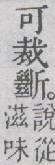 可裁斷。
說從
滋味